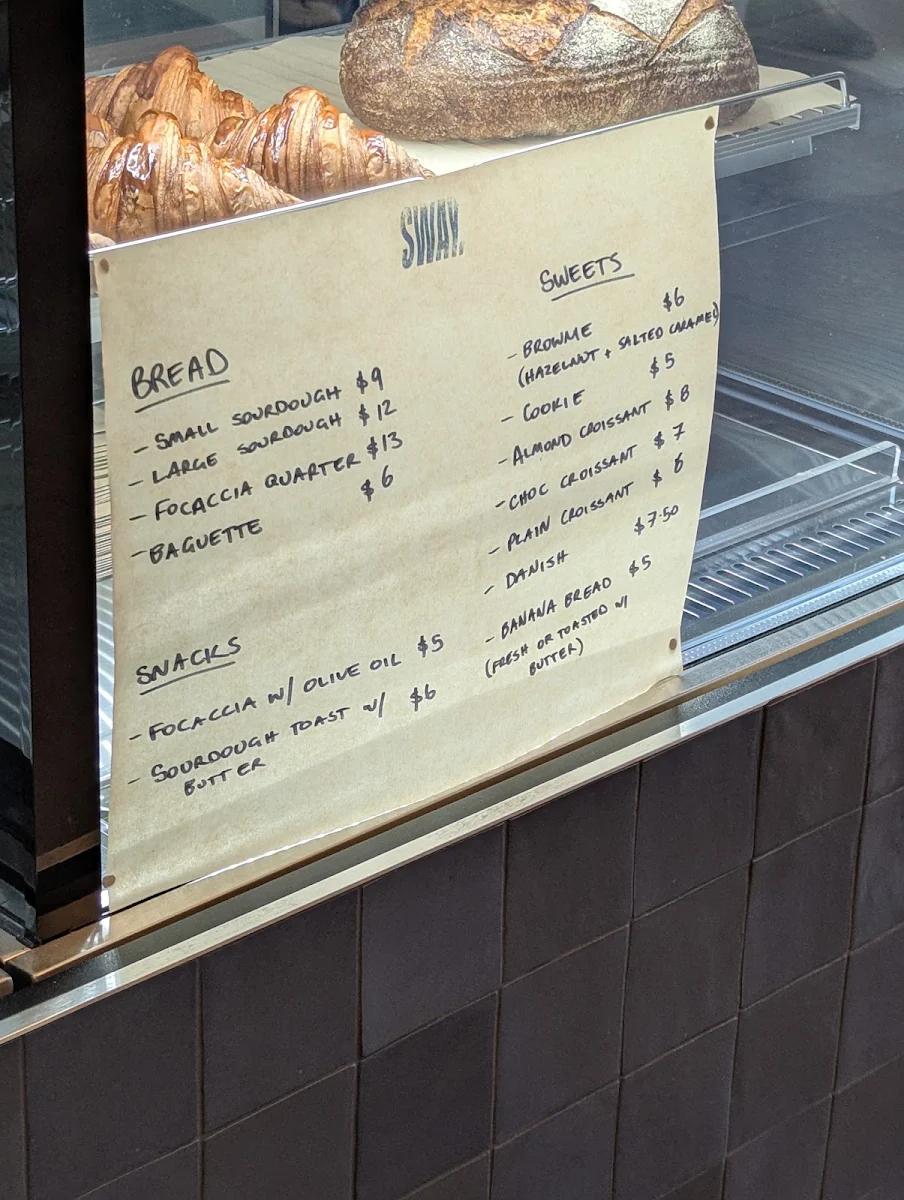 SWAY.
BREAD
- SMALL SOURDOUGH $9
- LARGE SOURDOUGH $12
- FOCACCIA QUARTER $13
- BAGUETTE $6
SNACKS
- FOCACCIA W/ OLIVE OIL $5
- SOURDOUGH TOAST W/ $6
BUTTER
SWEETS
- BROWNIE $6
(HAZELNUT + SALTED CARAMEL)
- COOKIE $5
- ALMOND CROISSANT $8
- CHOC CROISSANT $7
- PLAIN CROISSANT $6
- DANISH $7.50
- BANANA BREAD $5
(FRESH OR TOASTED W/
BUTTER)